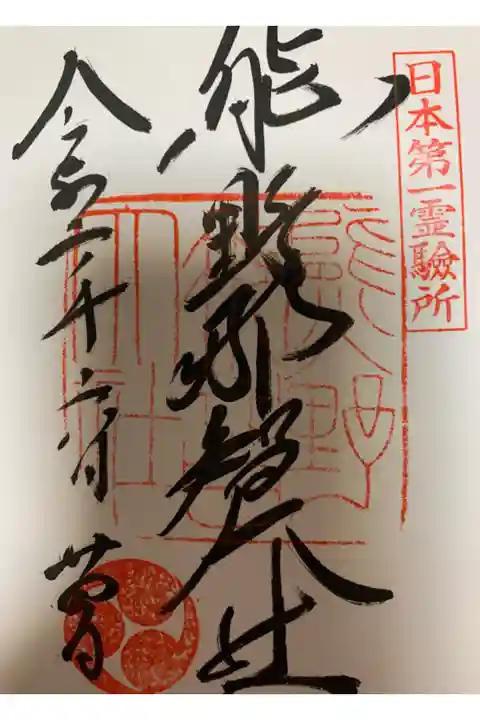 日本第一霊驗所
熊野那智大社
令和二年六月
熊野
那智
大社